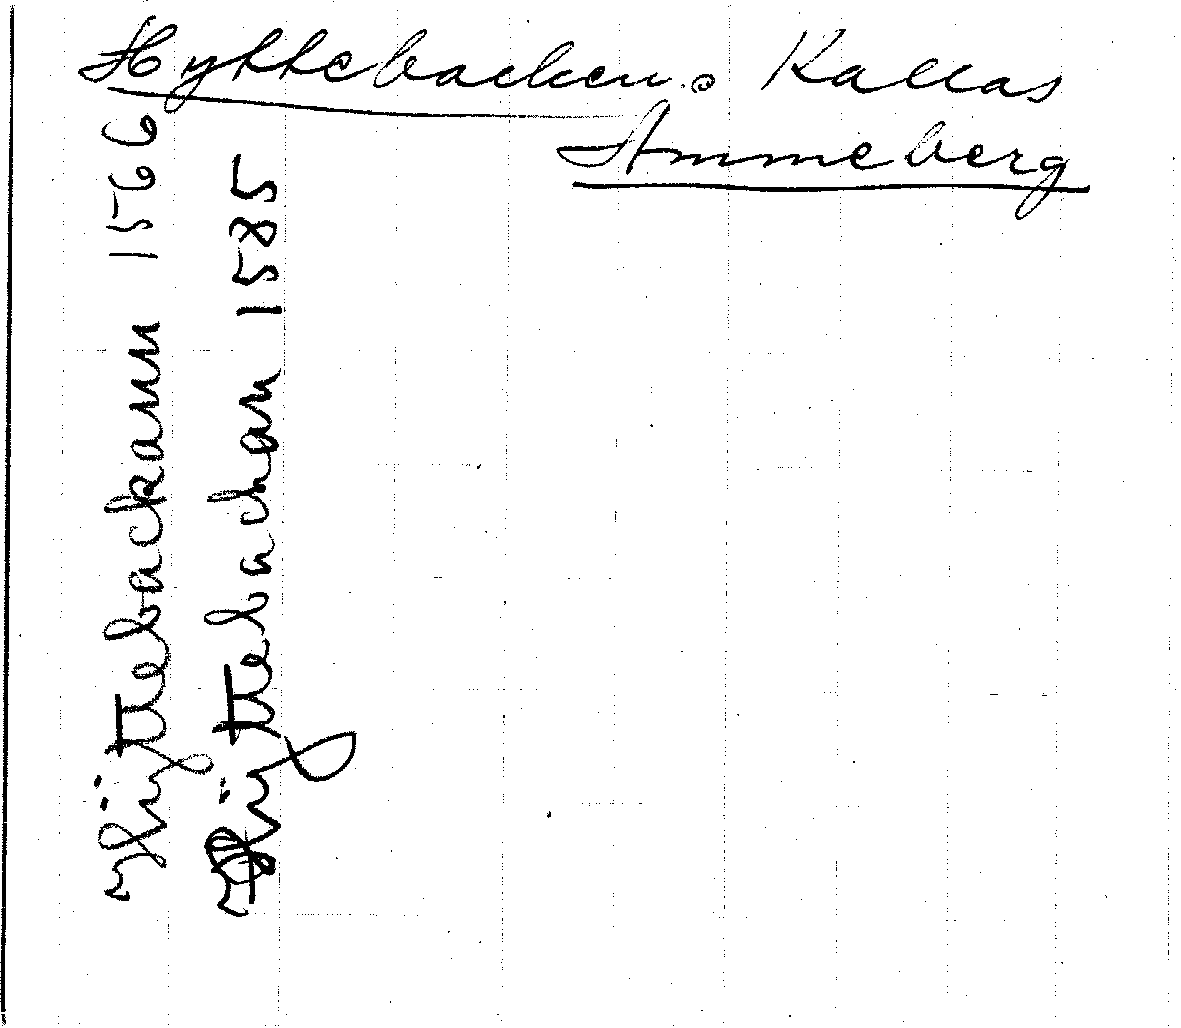 Hyttebacken. Kallas
Ammeberg
Hÿttebackann 1566
Hÿttebackan 1585